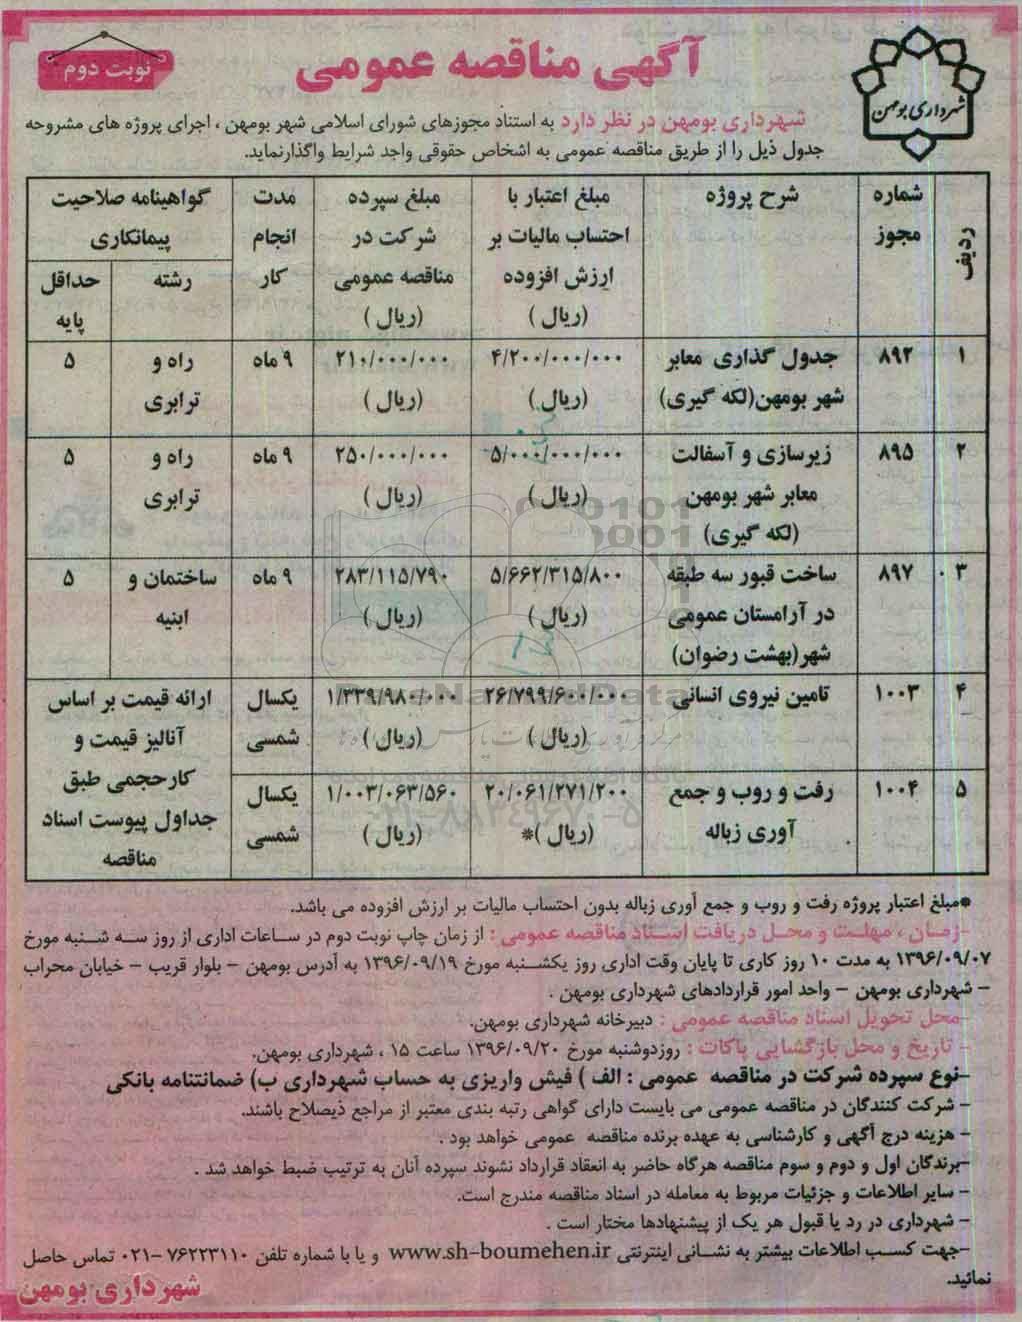 آگهی مناقصه عمومی
نوبت دوم
شهرداری بومهن
شهرداری بومهن در نظر دارد به استناد مجوزهای شورای اسلامی شهر بومهن ، اجرای پروژه های مشروحه
جدول ذیل را از طریق مناقصه عمومی به اشخاص حقوقی واجد شرایط واگذارنماید.
ردیف | شماره مجوز | شرح پروژه | مبلغ اعتبار با احتساب مالیات بر ارزش افزوده (ریال ) | مبلغ سپرده شرکت در مناقصه عمومی (ریال ) | مدت انجام کار | گواهینامه صلاحیت پیمانکاری
رشته | حداقل پایه
۱ | ۸۹۲ | جدول گذاری معابر شهر بومهن(لکه گیری) | ۴/۲۰۰/۰۰۰/۰۰۰ (ریال) | ۲۱۰/۰۰۰/۰۰۰ (ریال ) | ۹ ماه | راه و ترابری | ۵
۲ | ۸۹۵ | زیرسازی و آسفالت معابر شهر بومهن (لکه گیری) | ۵/۰۰۰/۰۰۰/۰۰۰ (ریال ) | ۲۵۰/۰۰۰/۰۰۰ (ریال ) | ۹ ماه | راه و ترابری | ۵
۳ | ۸۹۷ | ساخت قبور سه طبقه در آرامستان عمومی شهر(بهشت رضوان) | ۵/۶۶۲/۳۱۵/۸۰۰ (ریال ) | ۲۸۳/۱۱۵/۷۹۰ (ریال ) | ۹ ماه | ساختمان و ابنیه | ۵
۴ | ۱۰۰۳ | تامین نیروی انسانی | ۲۶/۷۹۹/۶۰۰/۰۰۰ (ریال ) | ۱/۳۳۹/۹۸۰/۰۰۰ (ریال ) | یکسال شمسی | ارائه قیمت بر اساس آنالیز قیمت و کارحجمی طبق جداول پیوست اسناد مناقصه
۵ | ۱۰۰۴ | رفت و روب و جمع آوری زباله | ۲۰/۰۶۱/۲۷۱/۲۰۰ (ریال )* | ۱/۰۰۳/۰۶۳/۵۶۰ (ریال ) | یکسال شمسی
*مبلغ اعتبار پروژه رفت و روب و جمع آوری زباله بدون احتساب مالیات بر ارزش افزوده می باشد.
-زمان ، مهلت و محل دریافت اسناد مناقصه عمومی : از زمان چاپ نوبت دوم در ساعات اداری از روز سه شنبه مورخ
۱۳۹۶/۰۹/۰۷ به مدت ۱۰ روز کاری تا پایان وقت اداری روز یکشنبه مورخ ۱۳۹۶/۰۹/۱۹ به آدرس بومهن - بلوار قریب - خیابان محراب
- شهرداری بومهن - واحد امور قراردادهای شهرداری بومهن .
-محل تحویل اسناد مناقصه عمومی : دبیرخانه شهرداری بومهن.
- تاریخ و محل بازگشایی پاکات : روزدوشنبه مورخ ۱۳۹۶/۰۹/۲۰ ساعت ۱۵ ، شهرداری بومهن.
-نوع سپرده شرکت در مناقصه عمومی : الف ) فیش واریزی به حساب شهرداری ب) ضمانتنامه بانکی
- شرکت کنندگان در مناقصه عمومی می بایست دارای گواهی رتبه بندی معتبر از مراجع ذیصلاح باشند.
- هزینه درج آگهی و کارشناسی به عهده برنده مناقصه عمومی خواهد بود .
-برندگان اول و دوم و سوم مناقصه هرگاه حاضر به انعقاد قرارداد نشوند سپرده آنان به ترتیب ضبط خواهد شد .
- سایر اطلاعات و جزئیات مربوط به معامله در اسناد مناقصه مندرج است.
- شهرداری در رد یا قبول هر یک از پیشنهادها مختار است .
-جهت کسب اطلاعات بیشتر به نشانی اینترنتی www.sh-boumehen.ir و یا با شماره تلفن ۷۶۲۲۳۱۱۰ -۰۲۱ تماس حاصل
نمائید.
شهرداری بومهن